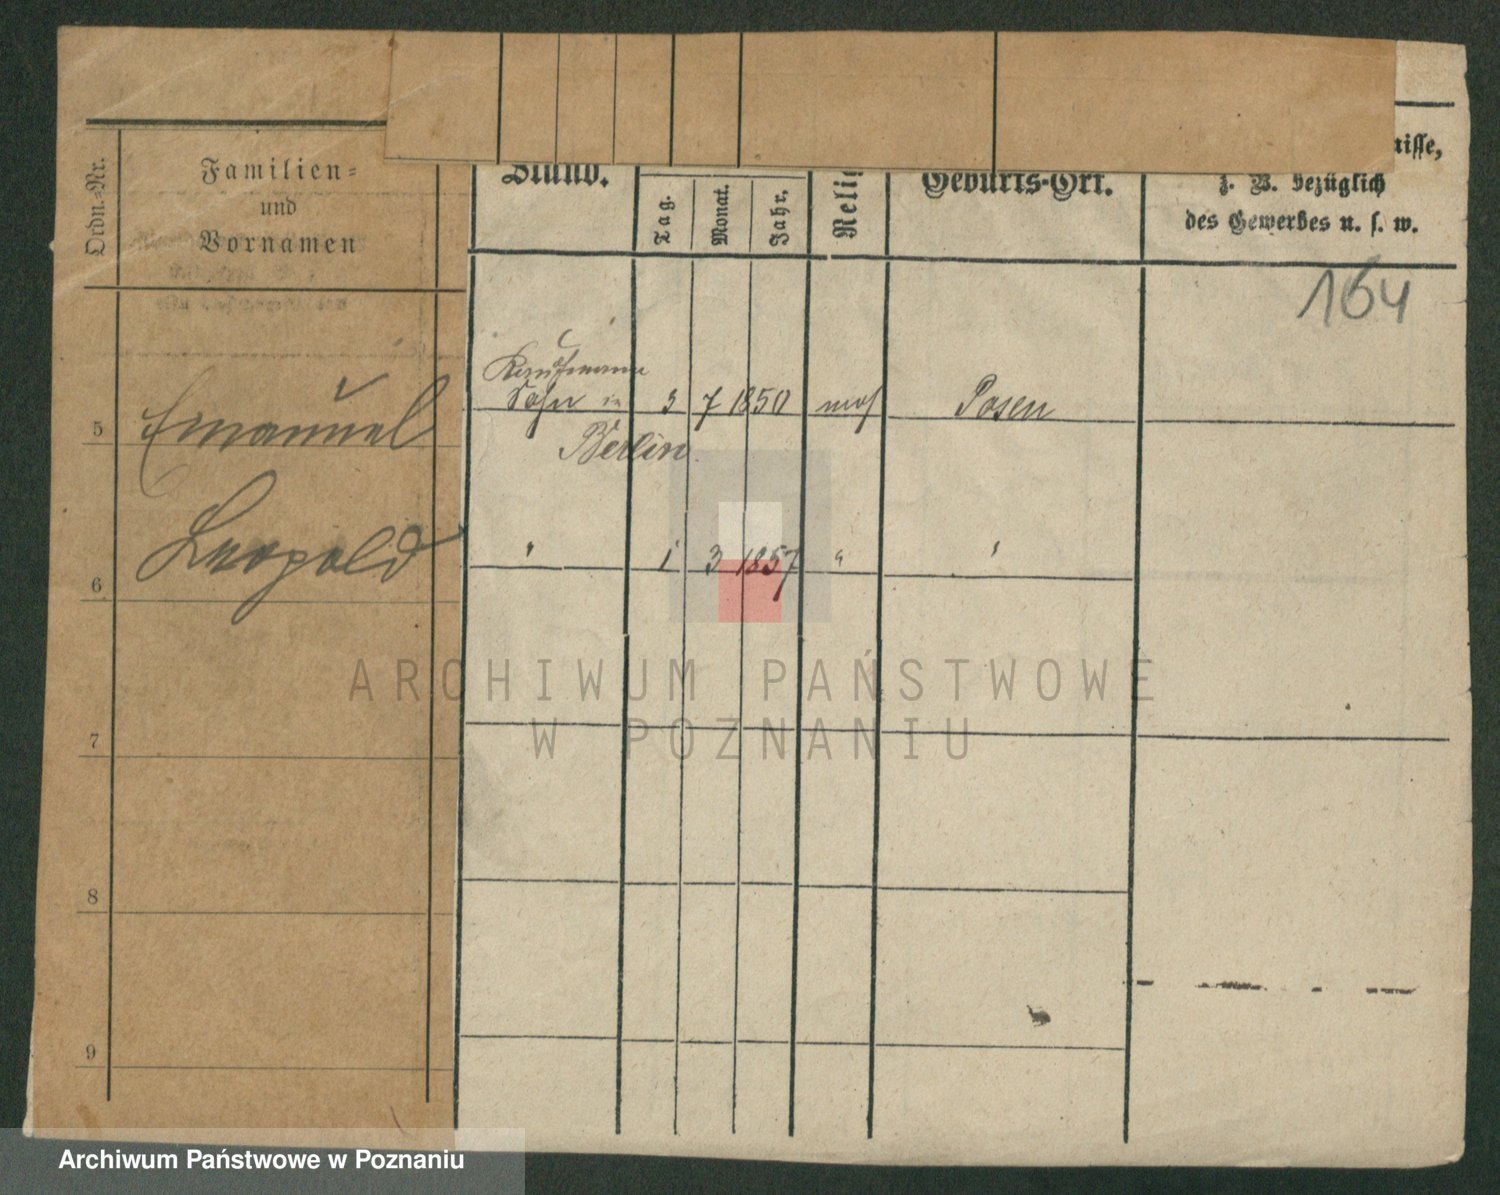 Ordn.-Nr.
Familien-
und
Vornamen
Stand.
Tag.
Monat.
Jahr.
Relig
Geburts-Ort.
nisse,
z. B. bezüglich
des Gewerbes u. s. w.
164
Kaufmann
5 Emanuel Sohn in 3 7 1850 mos Posen
Berlin
6 Leopold " 1 3 1857 " "
ARCHIWUM PAŃSTWOWE
W POZNANIU
7
8
9
Archiwum Państwowe w Poznaniu